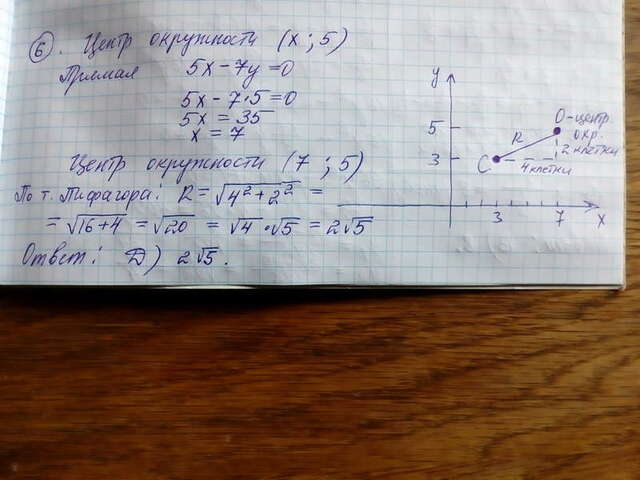 6. Центр окружности (x ; 5)
Прямая 5x - 7y = 0
5x - 7·5 = 0
5x = 35
x = 7
Центр окружности (7 ; 5)
По т. Пифагора: R = √4² + 2² =
= √16 + 4 = √20 = √4 · √5 = 2√5
Ответ: D) 2√5.
y
5
3
C
R
O - центр.
окр.
2 клетки
4 клетки
3
7
x